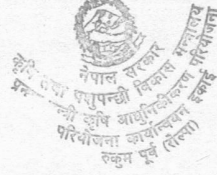 नेपाल सरकार
कृषि तथा पशुपन्छी विकास मन्त्रालय
प्रधानमन्त्री कृषि आधुनिकीकरण परियोजना
परियोजना कार्यान्वयन इकाई
रुकुम पूर्व (रोल्पा)